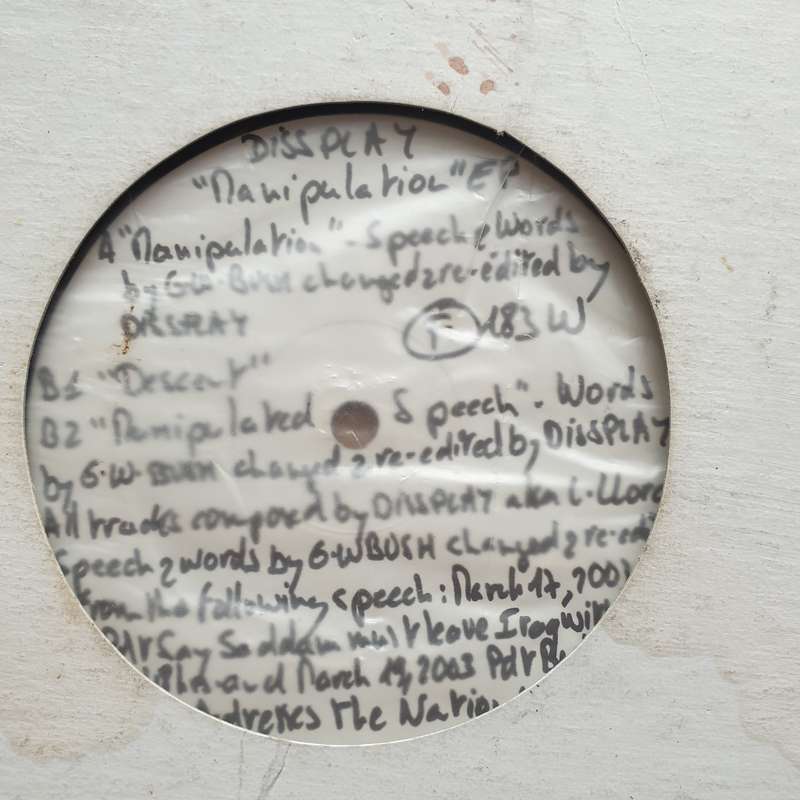 DISSPLAY
"Manipulation" EP
A "Manipulation" - Speech & Words
by G.W. BUSH changed & re-edited by
DISSPLAY
F 183 W
B1 "Descent"
B2 "Manipulated Speech" - Words
by G.W. BUSH changed & re-edited by DISSPLAY
All tracks composed by DISSPLAY aka
Speech & words by G.W BUSH changed & re-edi
from the following speech: March 17, 200
Say Saddam must leave Iraq wi
and March 19, 2003 Pdt
Adresses the Nation